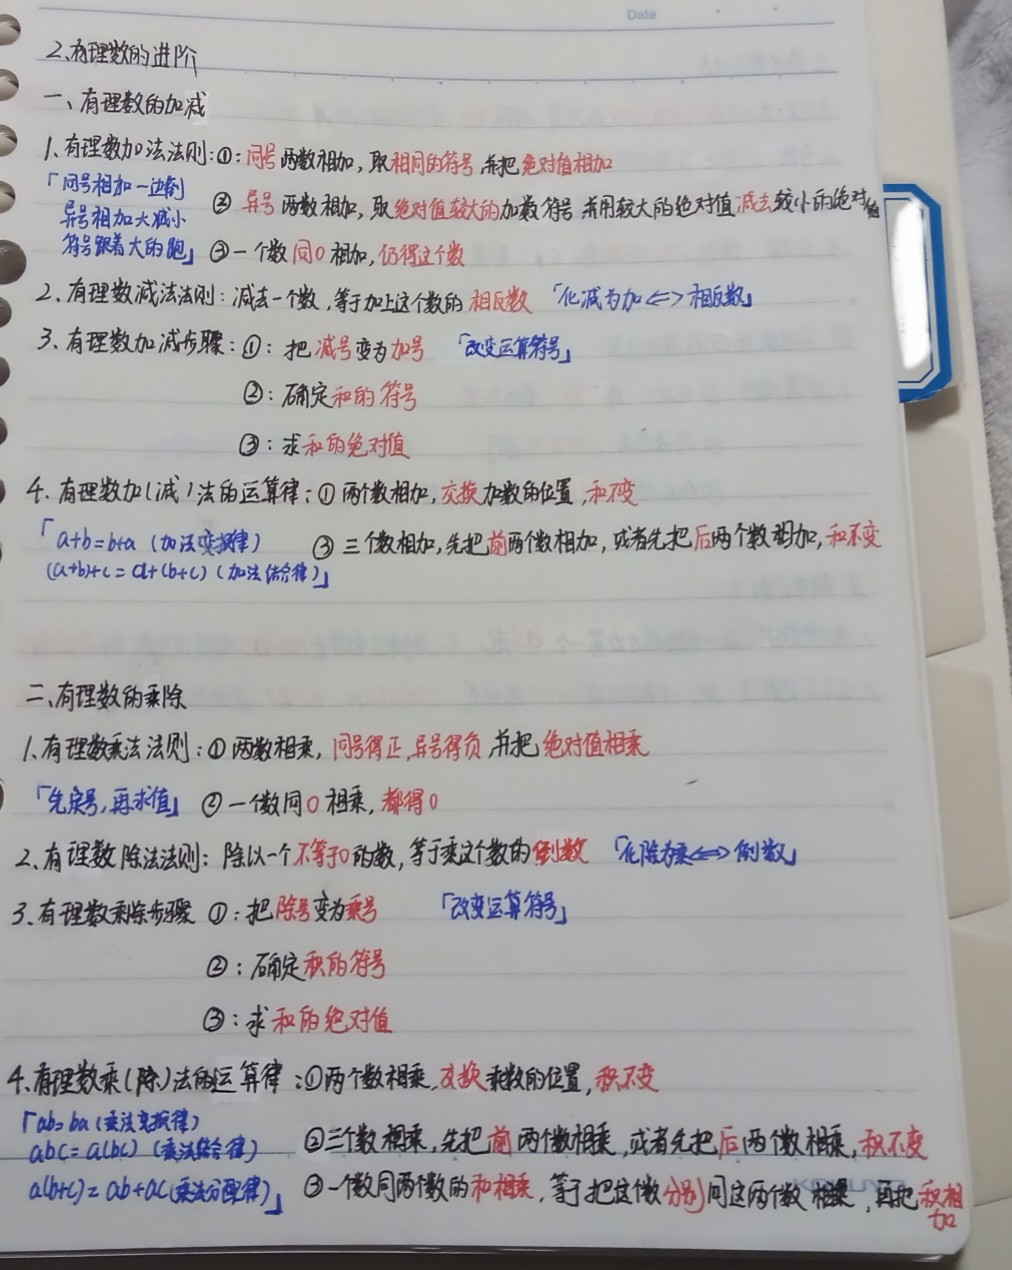 Date
2、有理数的进阶
一、有理数的加减
1、有理数加法法则:①:同号两数相加,取相同的符号,并把绝对值相加
「同号相加一边倒
异号相加大减小
符号跟着大的跑」
② 异号两数相加,取绝对值较大的加数符号 并用较大的绝对值减去较小的绝对值
③一个数同0相加,仍得这个数
2、有理数减法法则:减去一个数,等于加上这个数的相反数 「化减为加<=>相反数」
3、有理数加减步骤:①:把减号变为加号 「改变运算符号」
②:确定和的符号
③:求和的绝对值
4、有理数加(减)法的运算律:①两个数相加,交换加数的位置,和不变
「a+b=b+a(加法交换律)
(a+b)+c=a+(b+c)(加法结合律)」
② 三个数相加,先把前两个数相加,或者先把后两个数相加,和不变
二、有理数的乘除
1、有理数乘法法则:①两数相乘,同号得正,异号得负,并把绝对值相乘
「先定号,再求值」 ②一个数同0相乘,都得0
2、有理数除法法则:除以一个不等于0的数,等于乘这个数的倒数 「化除为乘<=>倒数」
3、有理数乘除步骤 ①:把除号变为乘号 「改变运算符号」
②:确定积的符号
③:求和的绝对值
4、有理数乘(除)法的运算律:①两个数相乘,交换乘数的位置,积不变
「ab=ba(乘法交换律)
abc=a(bc)(乘法结合律)
a(b+c)=ab+ac(乘法分配律)」
②三个数相乘,先把前两个数相乘,或者先把后两个数相乘,积不变
③一个数同两个数的和相乘,等于把这个数分别同这两个数相乘,再把积相加